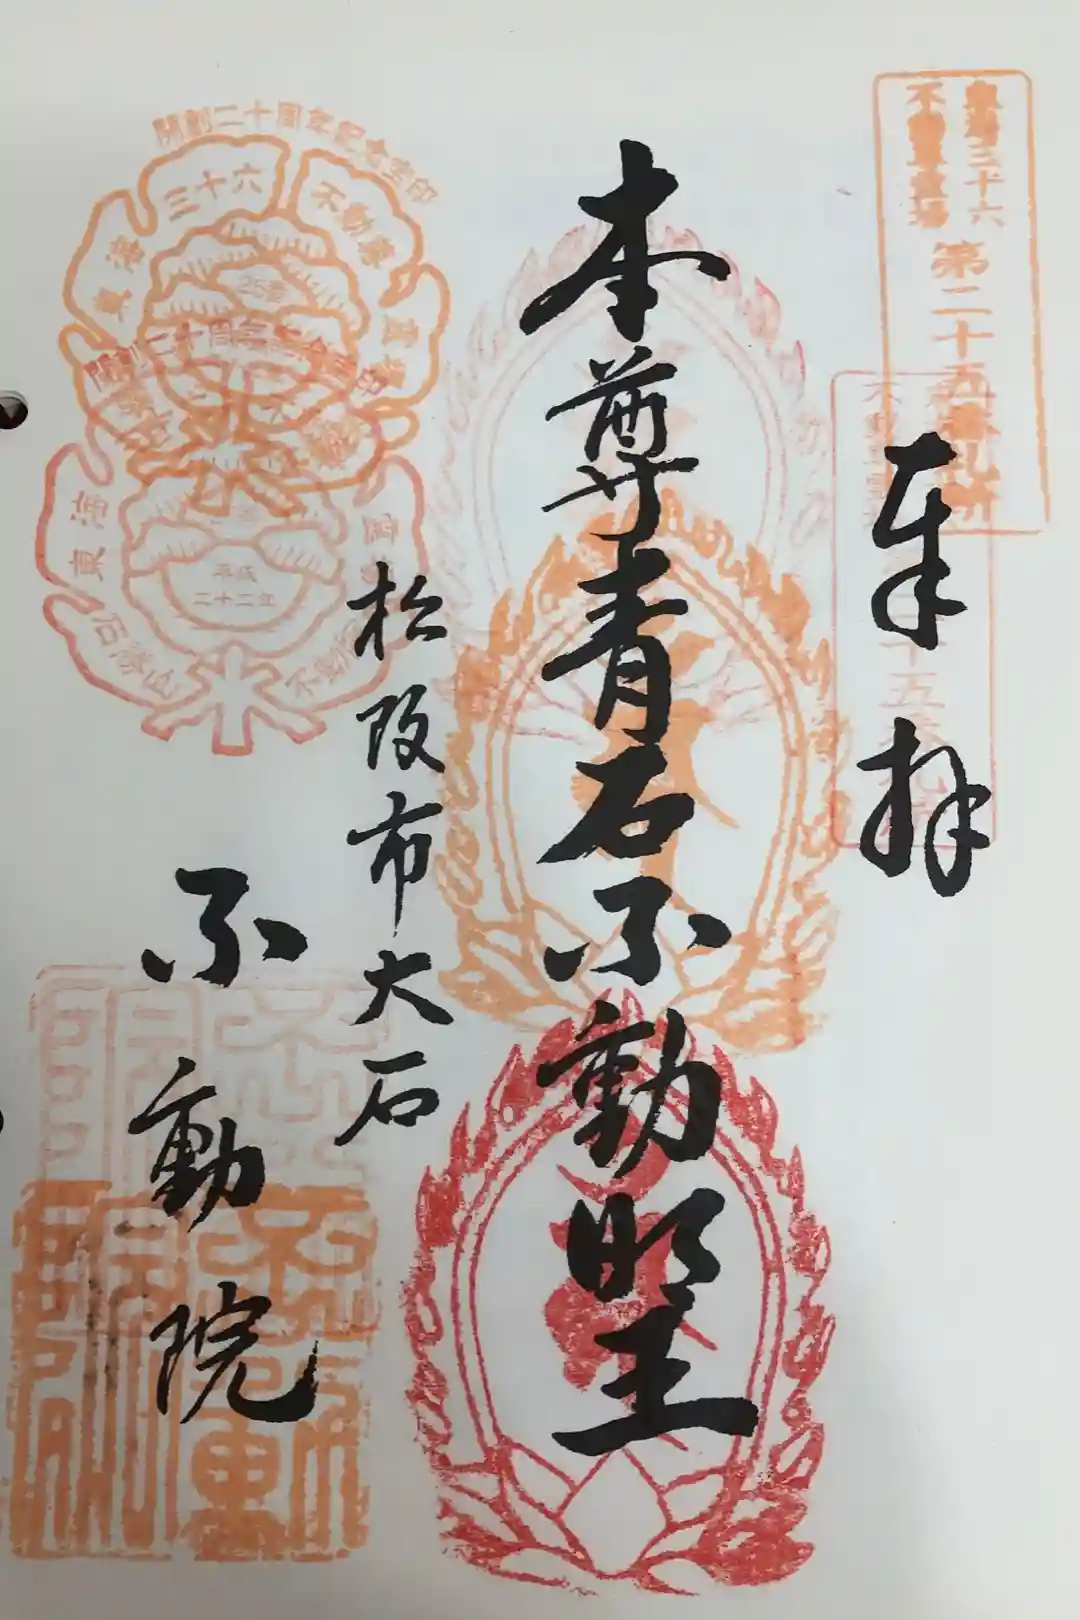 奉拝
本尊青石不動明王
松阪市大石
不動院
東海三十六
不動尊霊場
第二十五番札所
開創二十周年記念宝印
東海
三十六
不動尊
霊場
25番
開創二十周年記念宝印
東海
石勝山
不動院
平成
二十二年
十五番札所
不動院
不動院